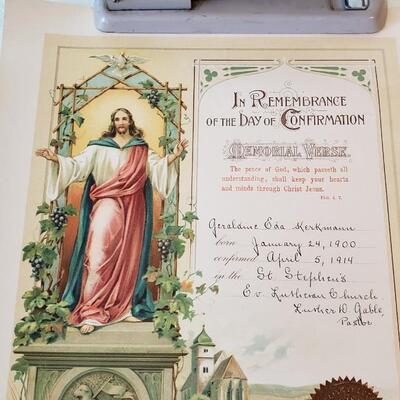 IN REMEMBRANCE
OF THE DAY OF CONFIRMATION
MEMORIAL VERSE.
The peace of God, which passeth all
understanding, shall keep your hearts
and minds through Christ Jesus.
PHIL. 4, 7.
Geraldine Eda Kerkmann
born January 24, 1900
confirmed April 5, 1914
in the St. Stephen's
Ev. Lutheran Church.
Luther D. Gable,
Pastor